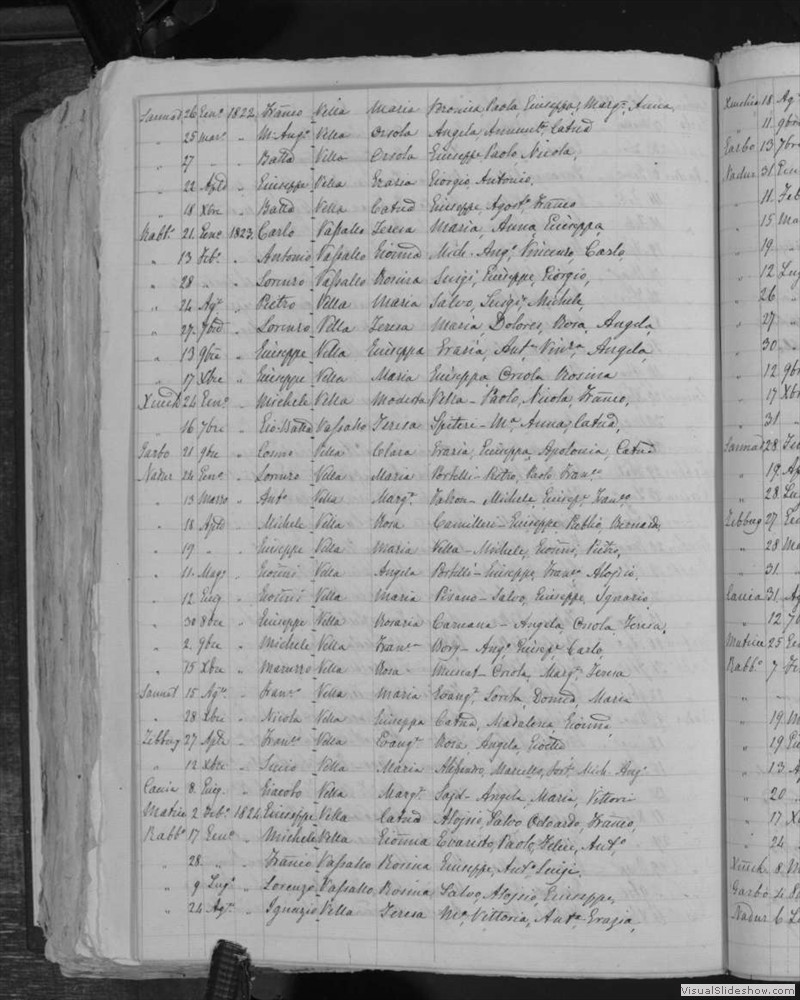 Sannat 26 Enn.o 1822 Franco Vella Maria Paola Giuseppa, Marg.a, Anna,
" 25 Mar.o " M. Ang.o Vella Orsola Angela, Catna
" 27 " " Batta Vella Orsola Giuseppe, Paolo, Nicola,
" 22 Aple " Giuseppe Vella Grazia Giorgio, Antonio,
" 18 Xbre " Batta Vella Catna Giuseppe, Agost.o, Franco
Rabb.o 21 Enn.o 1823 Carlo Vassallo Teresa Maria, Anna, Giuseppa,
" 13 Feb.o " Antonio Vassallo Gionna Mich. Ang.o, Vincenzo, Carlo,
" 28 " " Lorenzo Vassallo Rosina Luigi, Giuseppe, Giorgio,
" 24 Ag.o " Pietro Vella Maria Salvo, Luigi, Michele,
" 27 7bre " Lorenzo Vella Teresa Maria, Dolores, Rosa, Angela,
" 13 9bre " Giuseppe Vella Giuseppa Grazia, Ant.a, Angela,
" 17 Xbre " Giuseppe Vella Maria Giuseppa, Orsola, Rosina
Xeuch 24 Enn.o " Michele Vella Modesta Vella - Paolo, Nicola, Franco,
" 16 7bre " Gio Batta Vassallo Teresa Spiteri - M.a, Anna, Catna,
Garbo 21 9bre " Cosmo Vella Clara Grazia, Giuseppa, Apolonia, Catna
Nadur 24 Enn.o " Lorenzo Vella Maria Portelli - Pietro, Paolo, Fran.co
" 13 Marzo " Ant.o Vella Marg.a Michele, Giusep.e, Fran.co
" 18 Aple " Michele Vella Rosa Camilleri - Giuseppe, Publio, Bernardo,
" 19 " " Giuseppe Vella Maria Vella - Michele, Gionni, Pietro,
" 11 Mag.o " Gionni Vella Angela Portelli - Giuseppe, Fran.co, Aloisio,
" 12 Giug. " Gionni Vella Maria Pisano - Salvo, Giuseppe, Ignazio,
" 30 8bre " Giuseppe Vella Rosaria Caruana - Angela, Orsola, Teresa,
" 2 9bre " Michele Vella Fran.ca Borg - Ang.o, Giusep.e, Carlo
" 15 Xbre " Maruzzo Vella Rosa Muscat - Orsola, Marg.a, Teresa
Sannat 15 Ag.o " Fran.co Vella Maria Evang.a, Loreta, Domca, Maria
" 28 Xbre " Nicola Vella Giuseppa Catna, Madalena, Gionna,
Zebbug 27 Aple " Fran.co Vella Evang.a Rosa, Angela,
" 12 Xbre " Lucio Vella Maria Alessandro, Marcello, Mich. Ang.o
Caccia 8 Giug. " Giacobo Vella Marg.a Said - Angela, Maria, Vittoria
Matrice 2 Feb.o 1824 Giuseppe Vella Catna Aloisio, Salvo, Odoardo, Franco,
Rabb.o 17 Enn.o " Michele Vella Gionna Evaristo, Paolo, Felice, Ant.o
" 28 " " Franco Vassallo Rosina Giuseppe, Ant.o, Luigi,
" 9 Lug.o " Lorenzo Vassallo Rosina Salvo, Aloisio, Giuseppe,
" 24 Ag.o " Ignazio Vella Teresa M.a, Vittoria, Ant.a, Grazia,
Xeuchia 18 Ag.
" 11 9bre
Garbo 13 7bre
Nadur 31 Enn
" 11 Feb
" 15 Mar
" 19 "
" 12 Lug
" 26 "
" 27 "
" 30 "
" 12 9br
" 17 Xbr
" 31 "
Sannat 28 Feb
" 19 Ap
" 28 Lu
Zebbug 27 En
" 28 Ma
" 31 "
Caccia 31 Ag
" 12 7b
Matrice 25 En
Rabb.o 7 Fe
" " "
" 19 M
" 19 Gi
" 13 A
" 20 "
" 17 X
" 24 "
Xeuch 8 M
Garbo 4
Nadur 6 L
VisualSlideshow.com